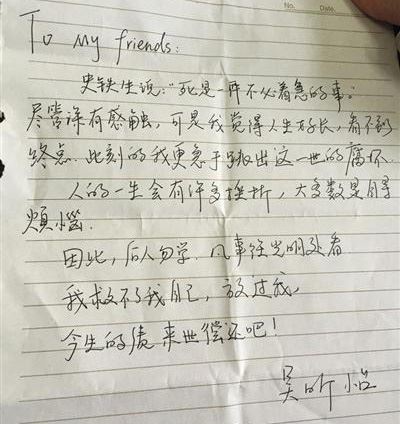 No.
Date
To my friends:
史铁生说:“死是一件不必着急的事”
尽管深有感触,可是我觉得人生好长,看不到
终点.此刻的我更急于跳出这一世的腐坏.
人的一生会有许多挫折,大多数是自寻
烦恼.
因此,后人勿学.凡事往光明处看
我救不了我自己,放过我,
今生的债来世偿还吧!
吴昕怡